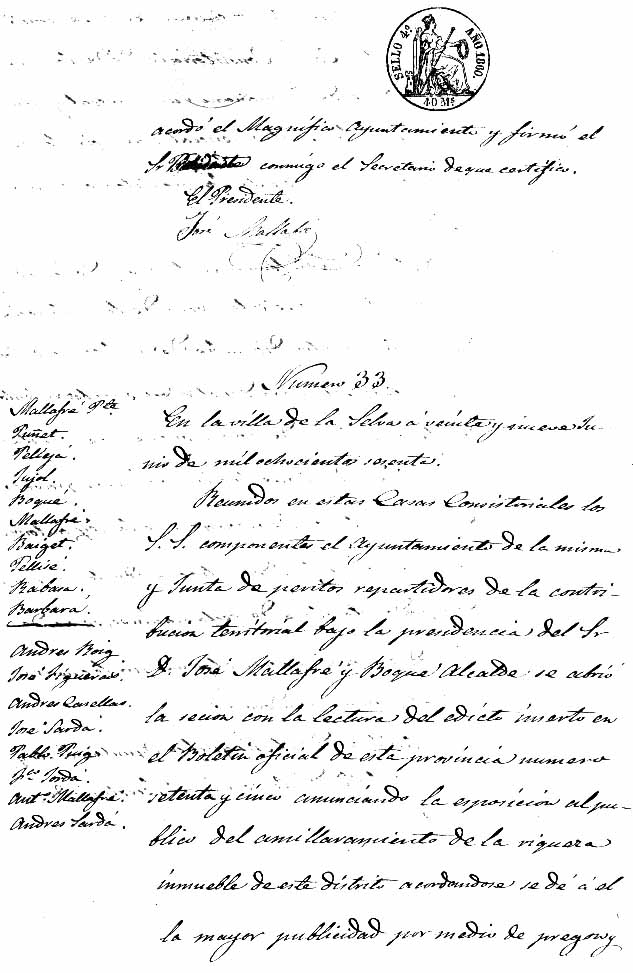 SELLO 4º AÑO 1860.
40 Ms
acordó el Magnífico Ayuntamiento y firmó el
Sr conmigo el Secretario de que certifico.
El Presidente.
José Mallafré
Numero 33.
Mallafré Pte
Puñet.
Pellejá.
Jujol.
Boqué.
Mallafré.
Baiget.
Pellisé.
Rabara.
Barbara.
Andres Roig
José Figueras.
Andres Casellas.
José Sardá.
Pablo Puig
Fco Jordá.
Anto Mallafré.
Andres Sardá.
En la villa de la Selva á veinte y nueve Ju-
nio de mil ochocientos sesenta.
Reunidos en estas Casas Consistoriales los
S.S. componentes el Ayuntamiento de la misma
y Junta de peritos repartidores de la contri-
bucion territorial bajo la presidencia del Sr
D. José Mallafré y Boqué Alcalde se abrió
la secion con la lectura del edicto inserto en
el Boletin oficial de esta provincia numero
setenta y cinco anunciando la esposicion al pu-
blico del amillaramiento de la riqueza
inmueble de este distrito acordandose se dé á el
la mayor publicidad por medio de pregon y